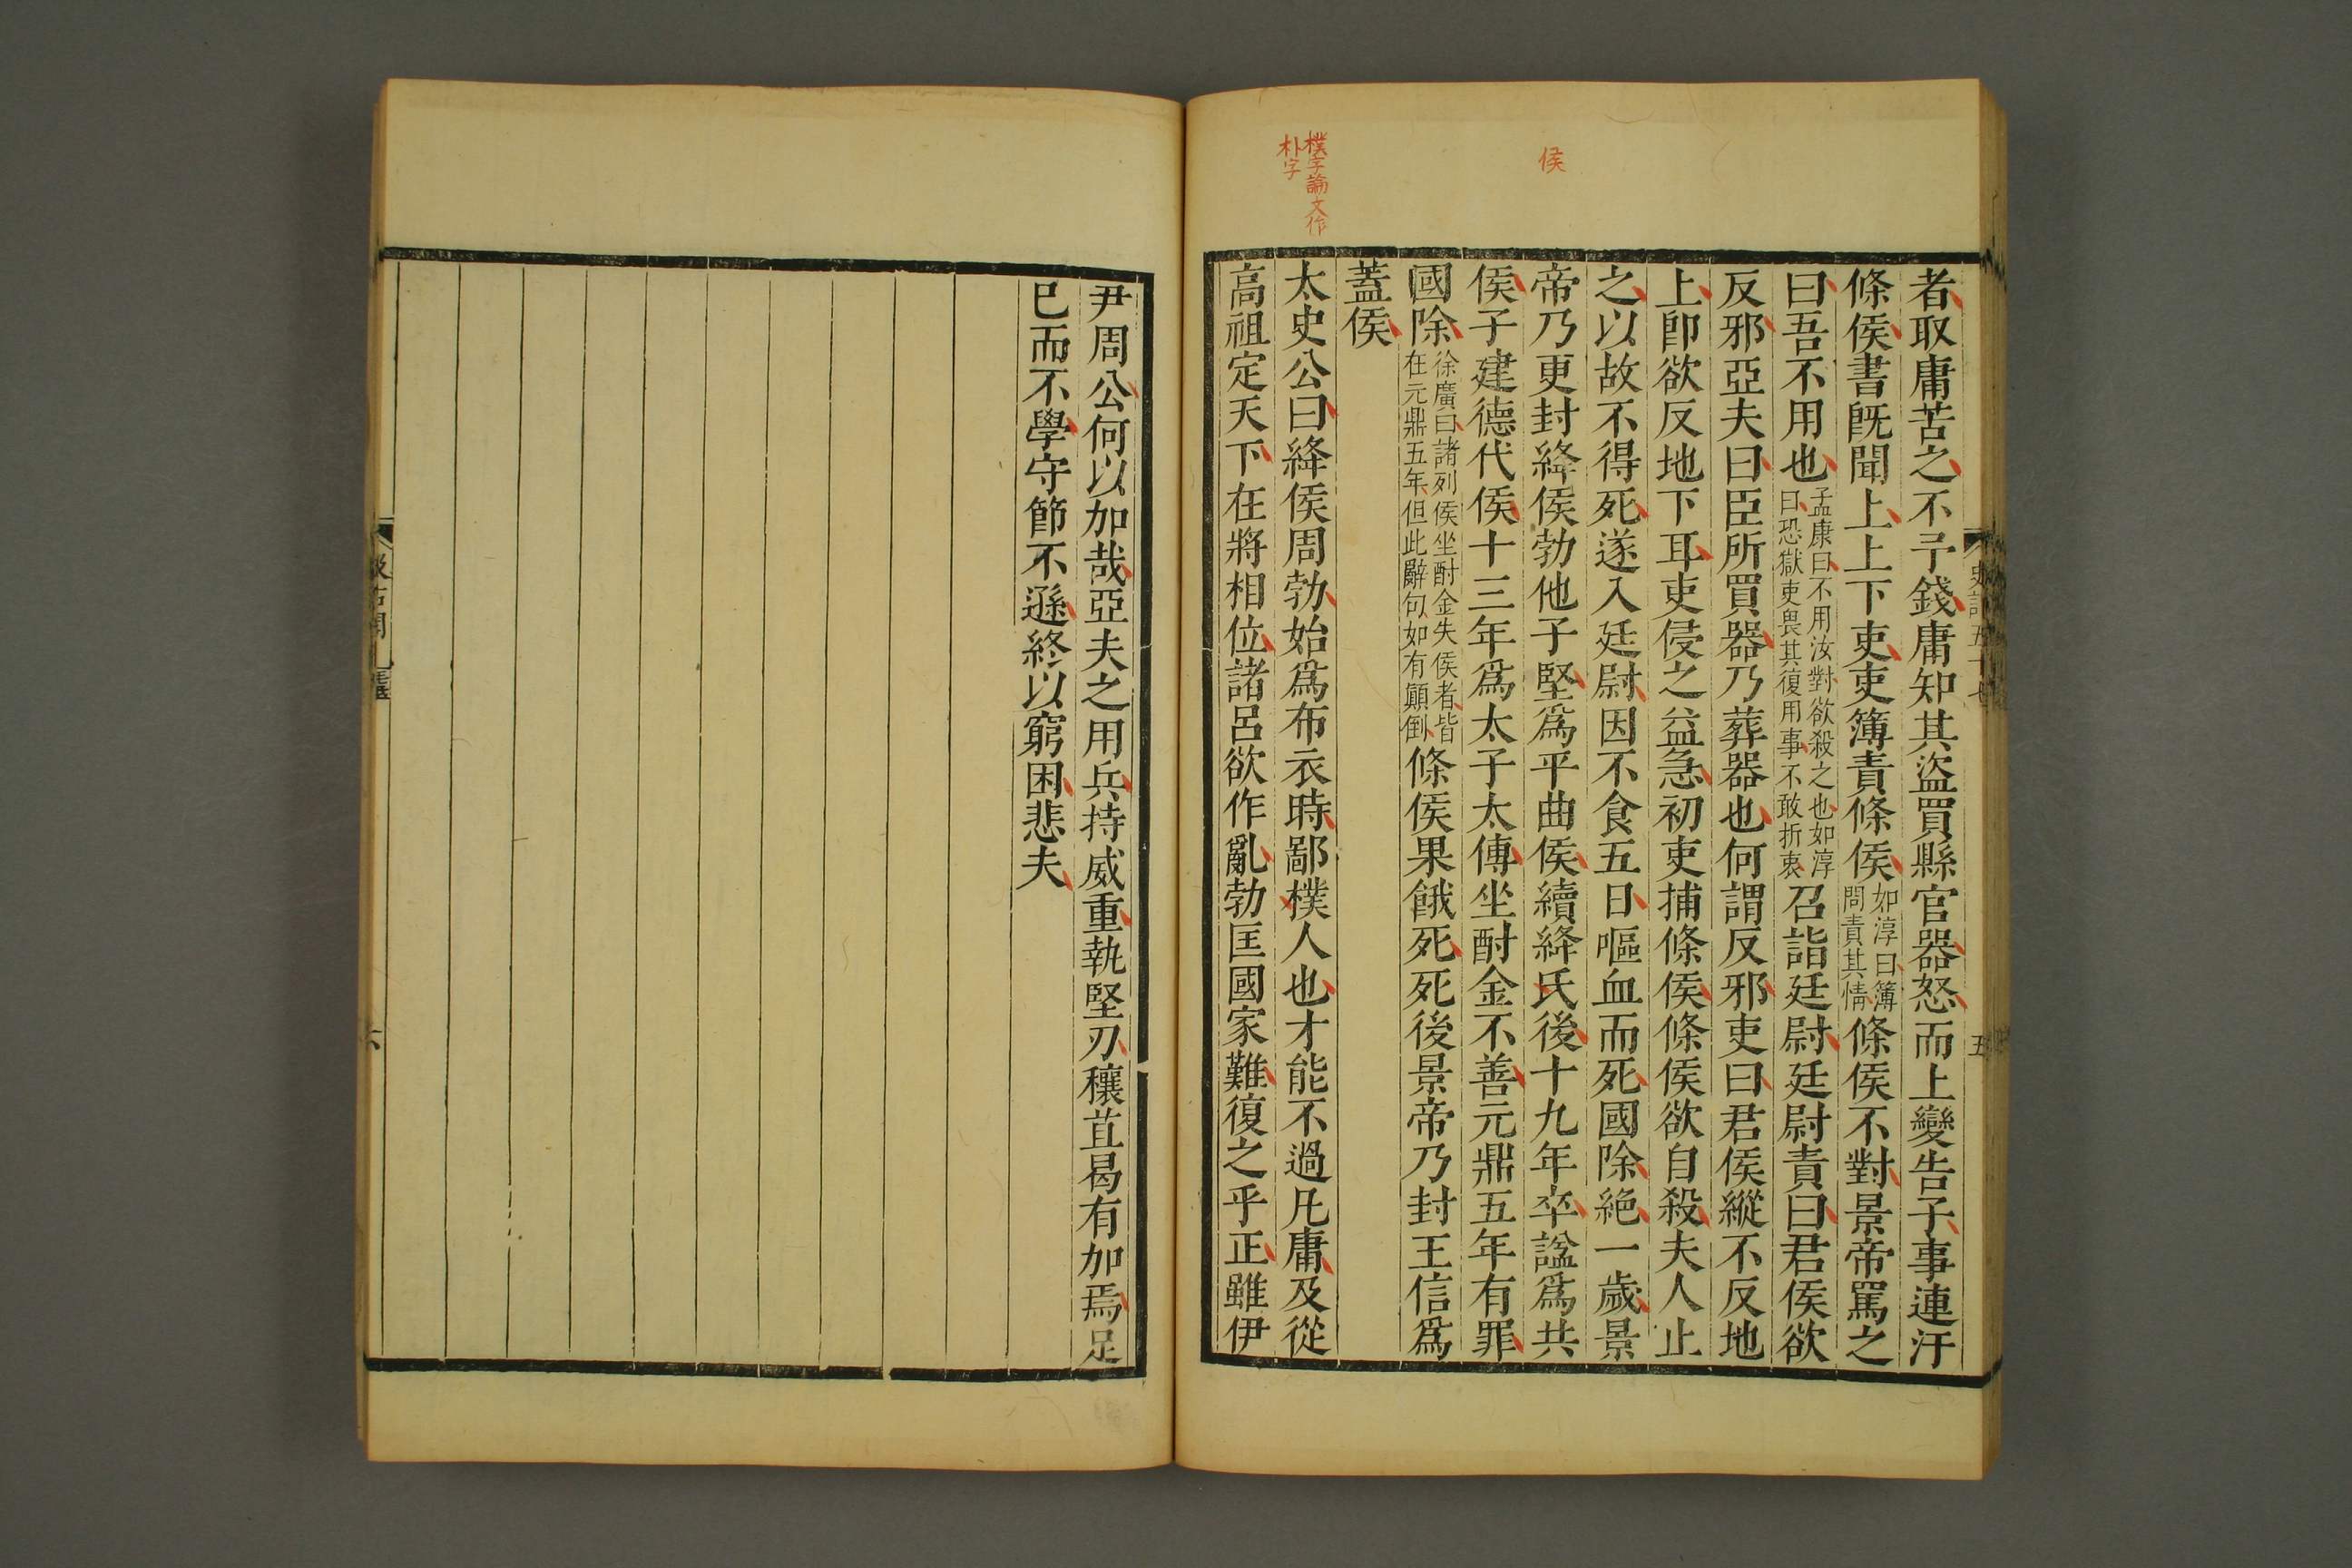 侯
樸字論文作
朴字
者取庸苦之不予錢庸知其盜買縣官器怒而上變告子事連汙
條侯書旣聞上上下吏吏簿責條侯如淳曰簿問責其情條侯不對景帝罵之
曰吾不用也孟康曰不用汝對欲殺之也如淳曰恐獄吏畏其復用事不敢折衷召詣廷尉廷尉責曰君侯欲
反邪亞夫曰臣所買器乃葬器也何謂反邪吏曰君侯縱不反地
上卽欲反地下耳吏侵之益急初吏捕條侯條侯欲自殺夫人止
之以故不得死遂入廷尉因不食五日嘔血而死國除絕一歲景
帝乃更封絳侯勃他子堅爲平曲侯續絳氏後十九年卒諡爲共
侯子建德代侯十三年爲太子太傅坐酎金不善元鼎五年有罪
國除徐廣曰諸列侯坐酎金失侯者皆在元鼎五年但此辭句如有顚倒條侯果餓死死後景帝乃封王信爲
蓋侯
太史公曰絳侯周勃始爲布衣時鄙樸人也才能不過凡庸及從
高祖定天下在將相位諸呂欲作亂勃匡國家難復之乎正雖伊
史記五十七
五
尹周公何以加哉亞夫之用兵持威重執堅刃穰苴曷有加焉足
已而不學守節不遜終以窮困悲夫
六